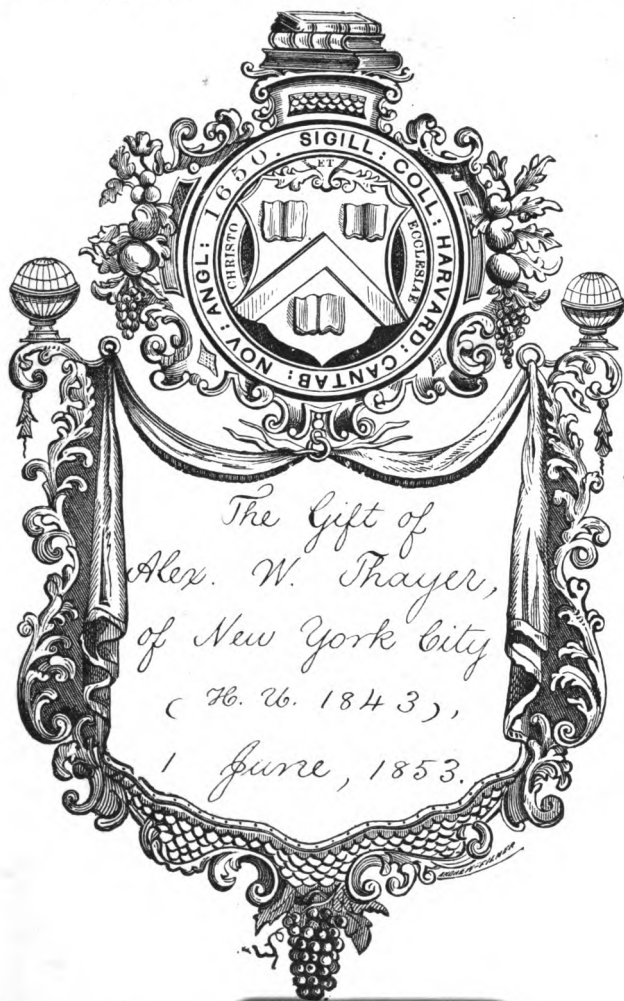 SIGILL: COLL: HARVARD: CANTAB: NOV: ANGL: 1650.
ET
CHRISTO
ECCLESIAE
The Gift of
Alex. W. Thayer,
of New York City
(H. U. 1843),
1 June, 1853.